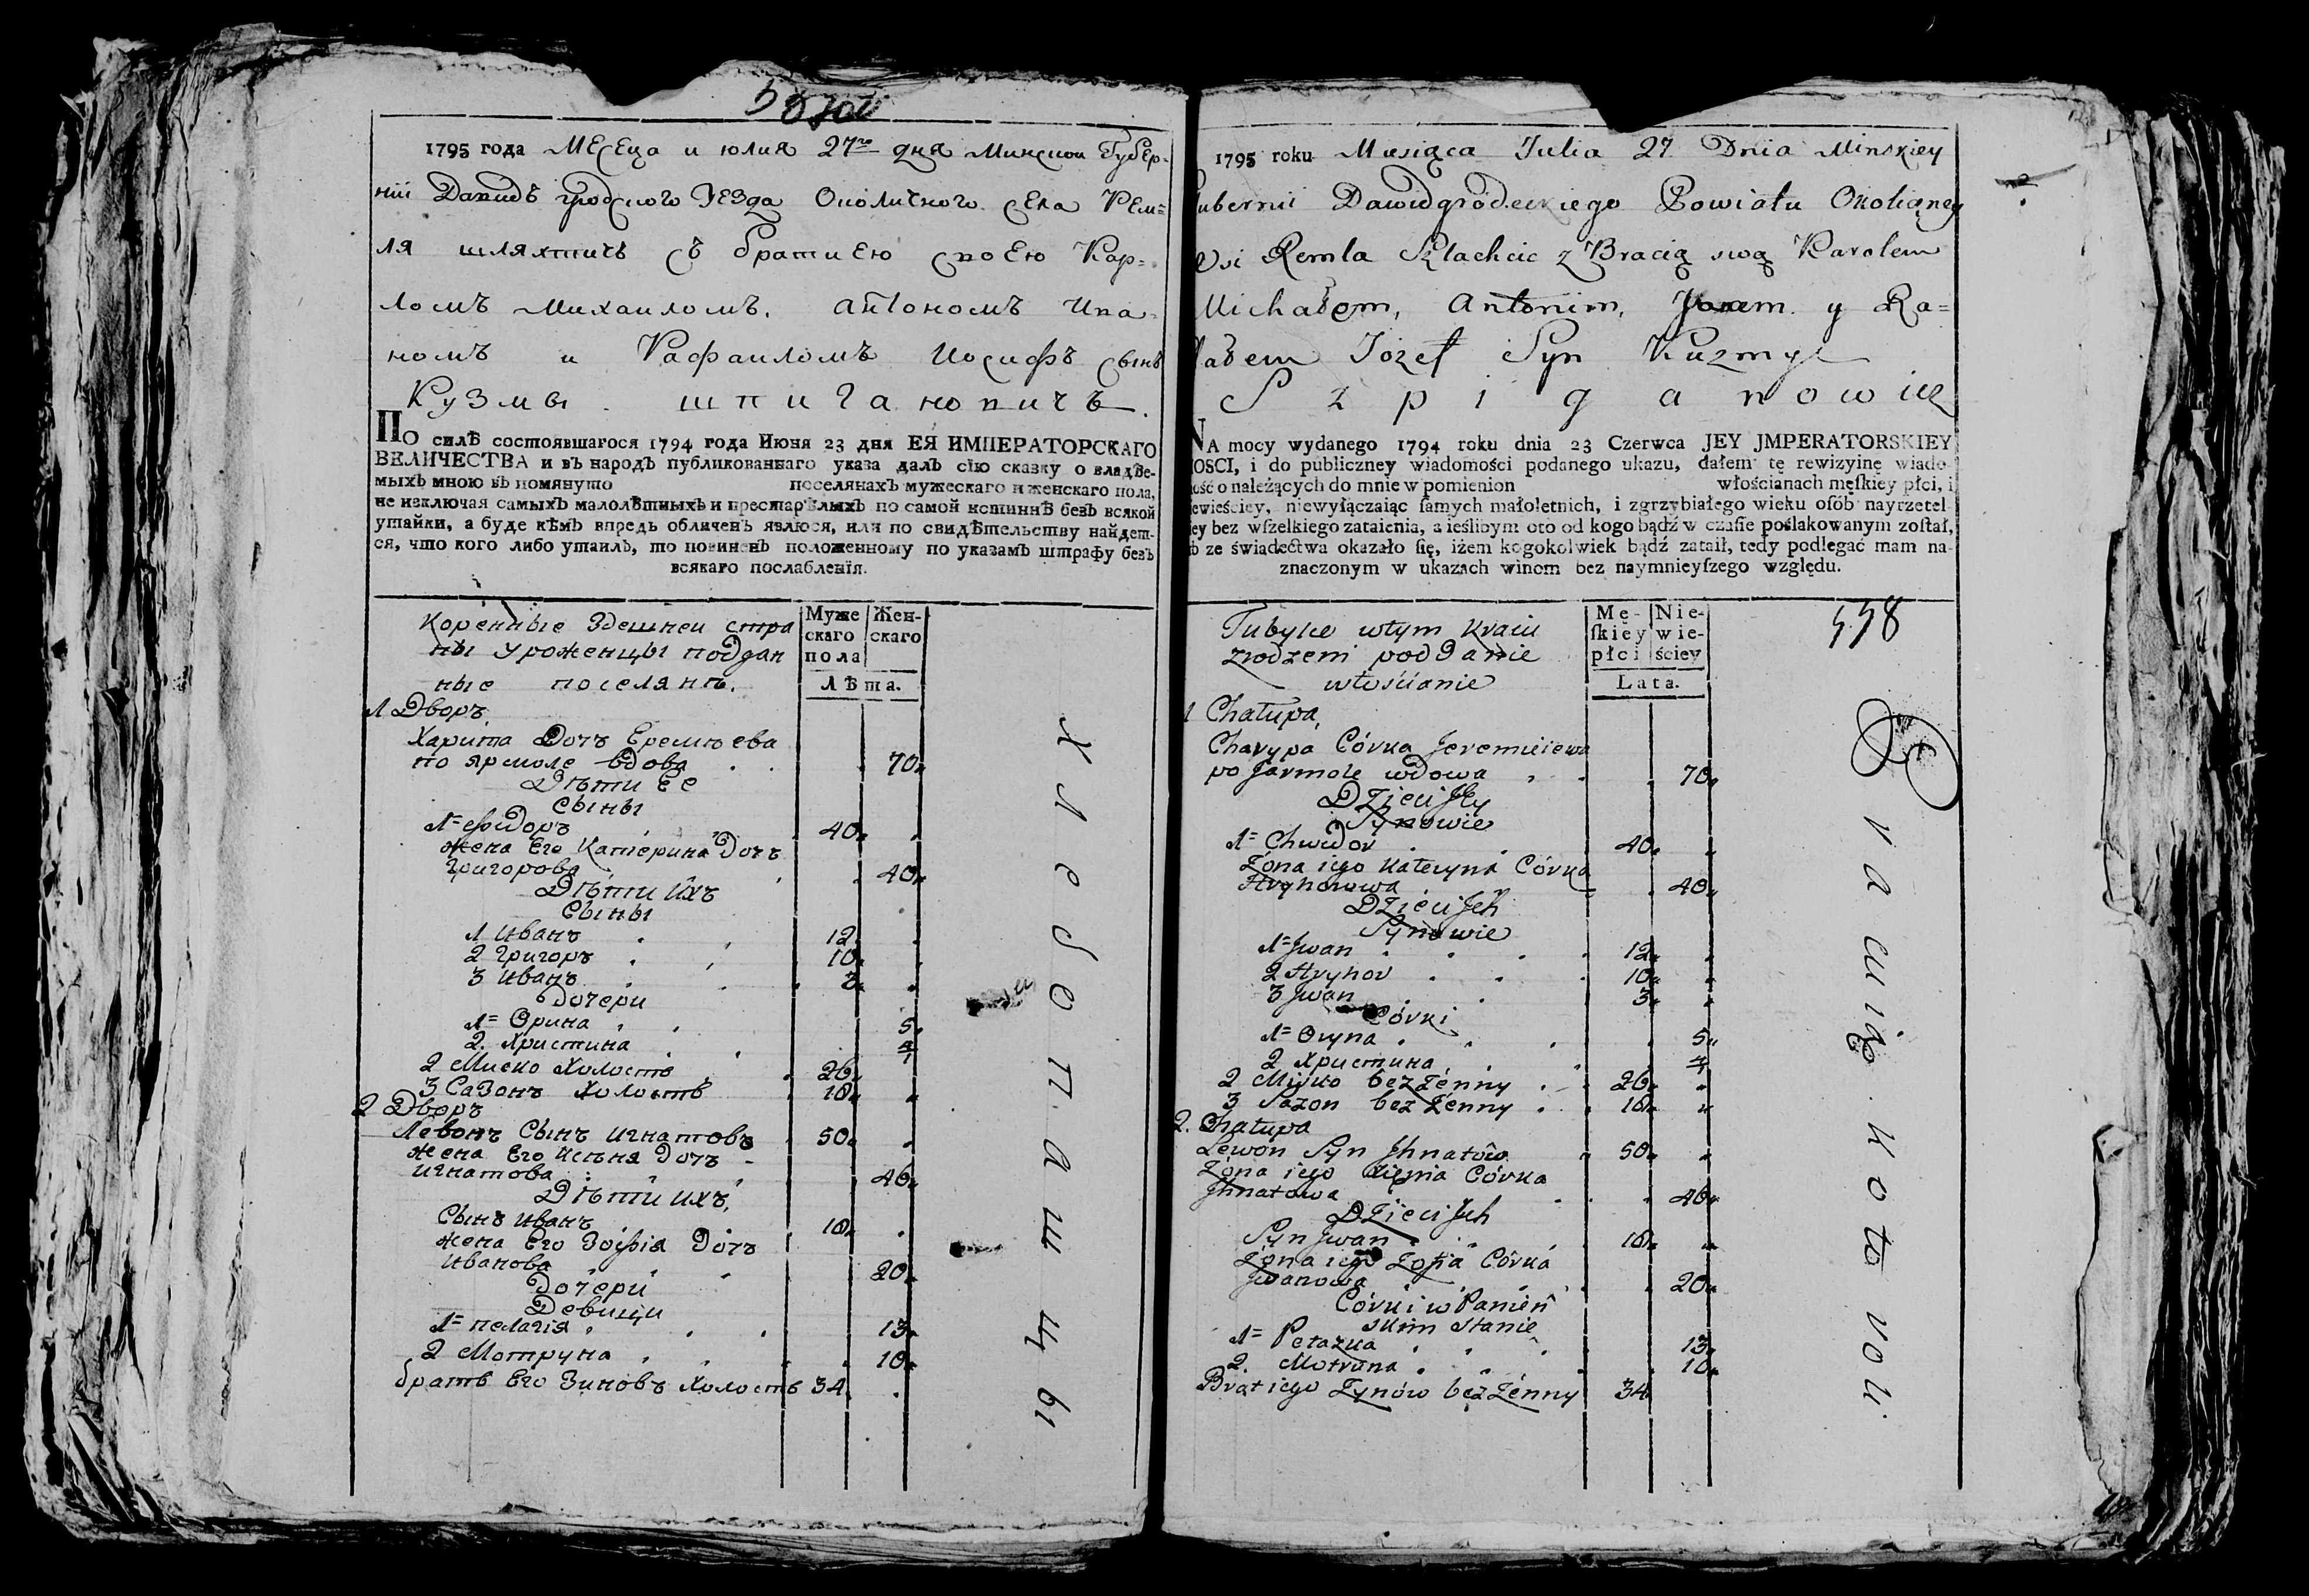 1795 года Месеца июлия 27го дня Минской Губер-
ніи Давидъ градскаго Уезда Околичного села Рем=
ля шляхтичъ съ братиею своею Кар=
ломъ Михаиломъ, Антономъ Ива-
номъ и Рафаиломъ Иосифъ сынъ
Кузмы Шпигановичъ.
ПО силѣ состоявшагося 1794 года Июня 23 дня ЕЯ ИМПЕРАТОРСКАГО
ВЕЛИЧЕСТВА и въ народъ публикованнаго указа далъ сію сказку о владѣе-
мыхъ мною въ помянуто поселянахъ мужескаго и женскаго пола,
не изключая самыхъ малолѣтныхъ и престарѣлыхъ по самой истиннѣ безъ всякой
утайки, а буде кѣмъ впредь обличенъ явлюся, или по свидѣтельству найдет-
ся, что кого либо утаилъ, то повиненъ положенному по указамъ штрафу безъ
всякаго послабленія.
Коренные Здешней стра
ны Уроженцы поддан
ные поселянѣ.
Муже
скаго
пола
Жен-
скаго
Лѣта.
1 Дворъ,
Харита Дочъ Еремѣева
по ярмоле вдова 70
Дѣти Ее
Сыны
1= Фидоръ 40
жена Его Катерина Дочъ
Григорова 40
Дѣти Ихъ
Сыны
1 Иванъ 12
2 Григоръ 10
3 Иванъ 3
Дочери
1= Орина 5
2. Христина 4
2 Миско Холостъ 26
3 Сазонъ Холостъ 18
2 Дворъ
Левонъ Сынъ Игнатовъ 50
жена Его Ксѣня Дочъ
Игнатова 46
Дѣти ихъ,
Сынъ Иванъ 18
жена Его Зофія Дочъ
Иванова 20
Дочери
Девицы
1= Пелагія 13
2 Мотруна 10
братъ Его Зиновъ Холостъ 34
Хлебопатцы
1795 roku Miesiąca Julia 27 Dnia Minskiey
ubernii Dawidgrodeckiego Powiatu Okoliczney
Wsi Remla Szlachcic z Bracią swą Karolem
Michałem, Antonim, Janem y Ra=
fałem Józef Syn Kuzmy
Szpiganowicz
NA mocy wydanego 1794 roku dnia 23 Czerwca JEY JMPERATORSKIEY
OSCI, i do publiczney wiadomości podanego ukazu, dałem tę rewizyinę wiado-
ość o należących do mnie w pomienion włościanach męſkiey płci, i
ewieściey, niewyłączaiąc ſamych małoletnich, i zgrzybiałego wieku oſób nayrzetel-
ey bez wſzelkiego zataienia, a ieślibym oto od kogo bądź w czaſie poślakowanym zoſtał,
b ze świadectwa okazało ſię, iżem kogokolwiek bądź zataił, tedy podlegać mam na-
znaczonym w ukazach winom bez naymnieyſzego względu.
Tubylce wtym kraiu
zrodzeni poddanie
włościanie
Mę-
ſkiey
płci
Nie-
wie-
ściey
Lata.
558
1 Chałupa,
Charypa Córka Jeremiiewa
po Jarmole wdowa 70
Dzieci Jey
Synowie
1= Chwidor 40
Żona iego Kateryna Córka
Hryhorowa 40
Dzieci Jch
Synowie
1= Jwan 12
2 Hryhor 10
3 Jwan 3
Córki
1= Oryna 5
2 Христина 4
2 Miśko bezżenny 26
3 Sazon bezżenny 18
2. Chałupa
Lewon Syn Jhnatów 50
Żona iego Xienia Córka
Jhnatowa 46
Dzieci Jch
Syn Jwan 18
Żona iego Zofia Córka
Jwanowa 20
Córki w Panień
skim stanie
1= Pełazka 13
2. Motruna 10
Brat iego Zynów bezżenny 34